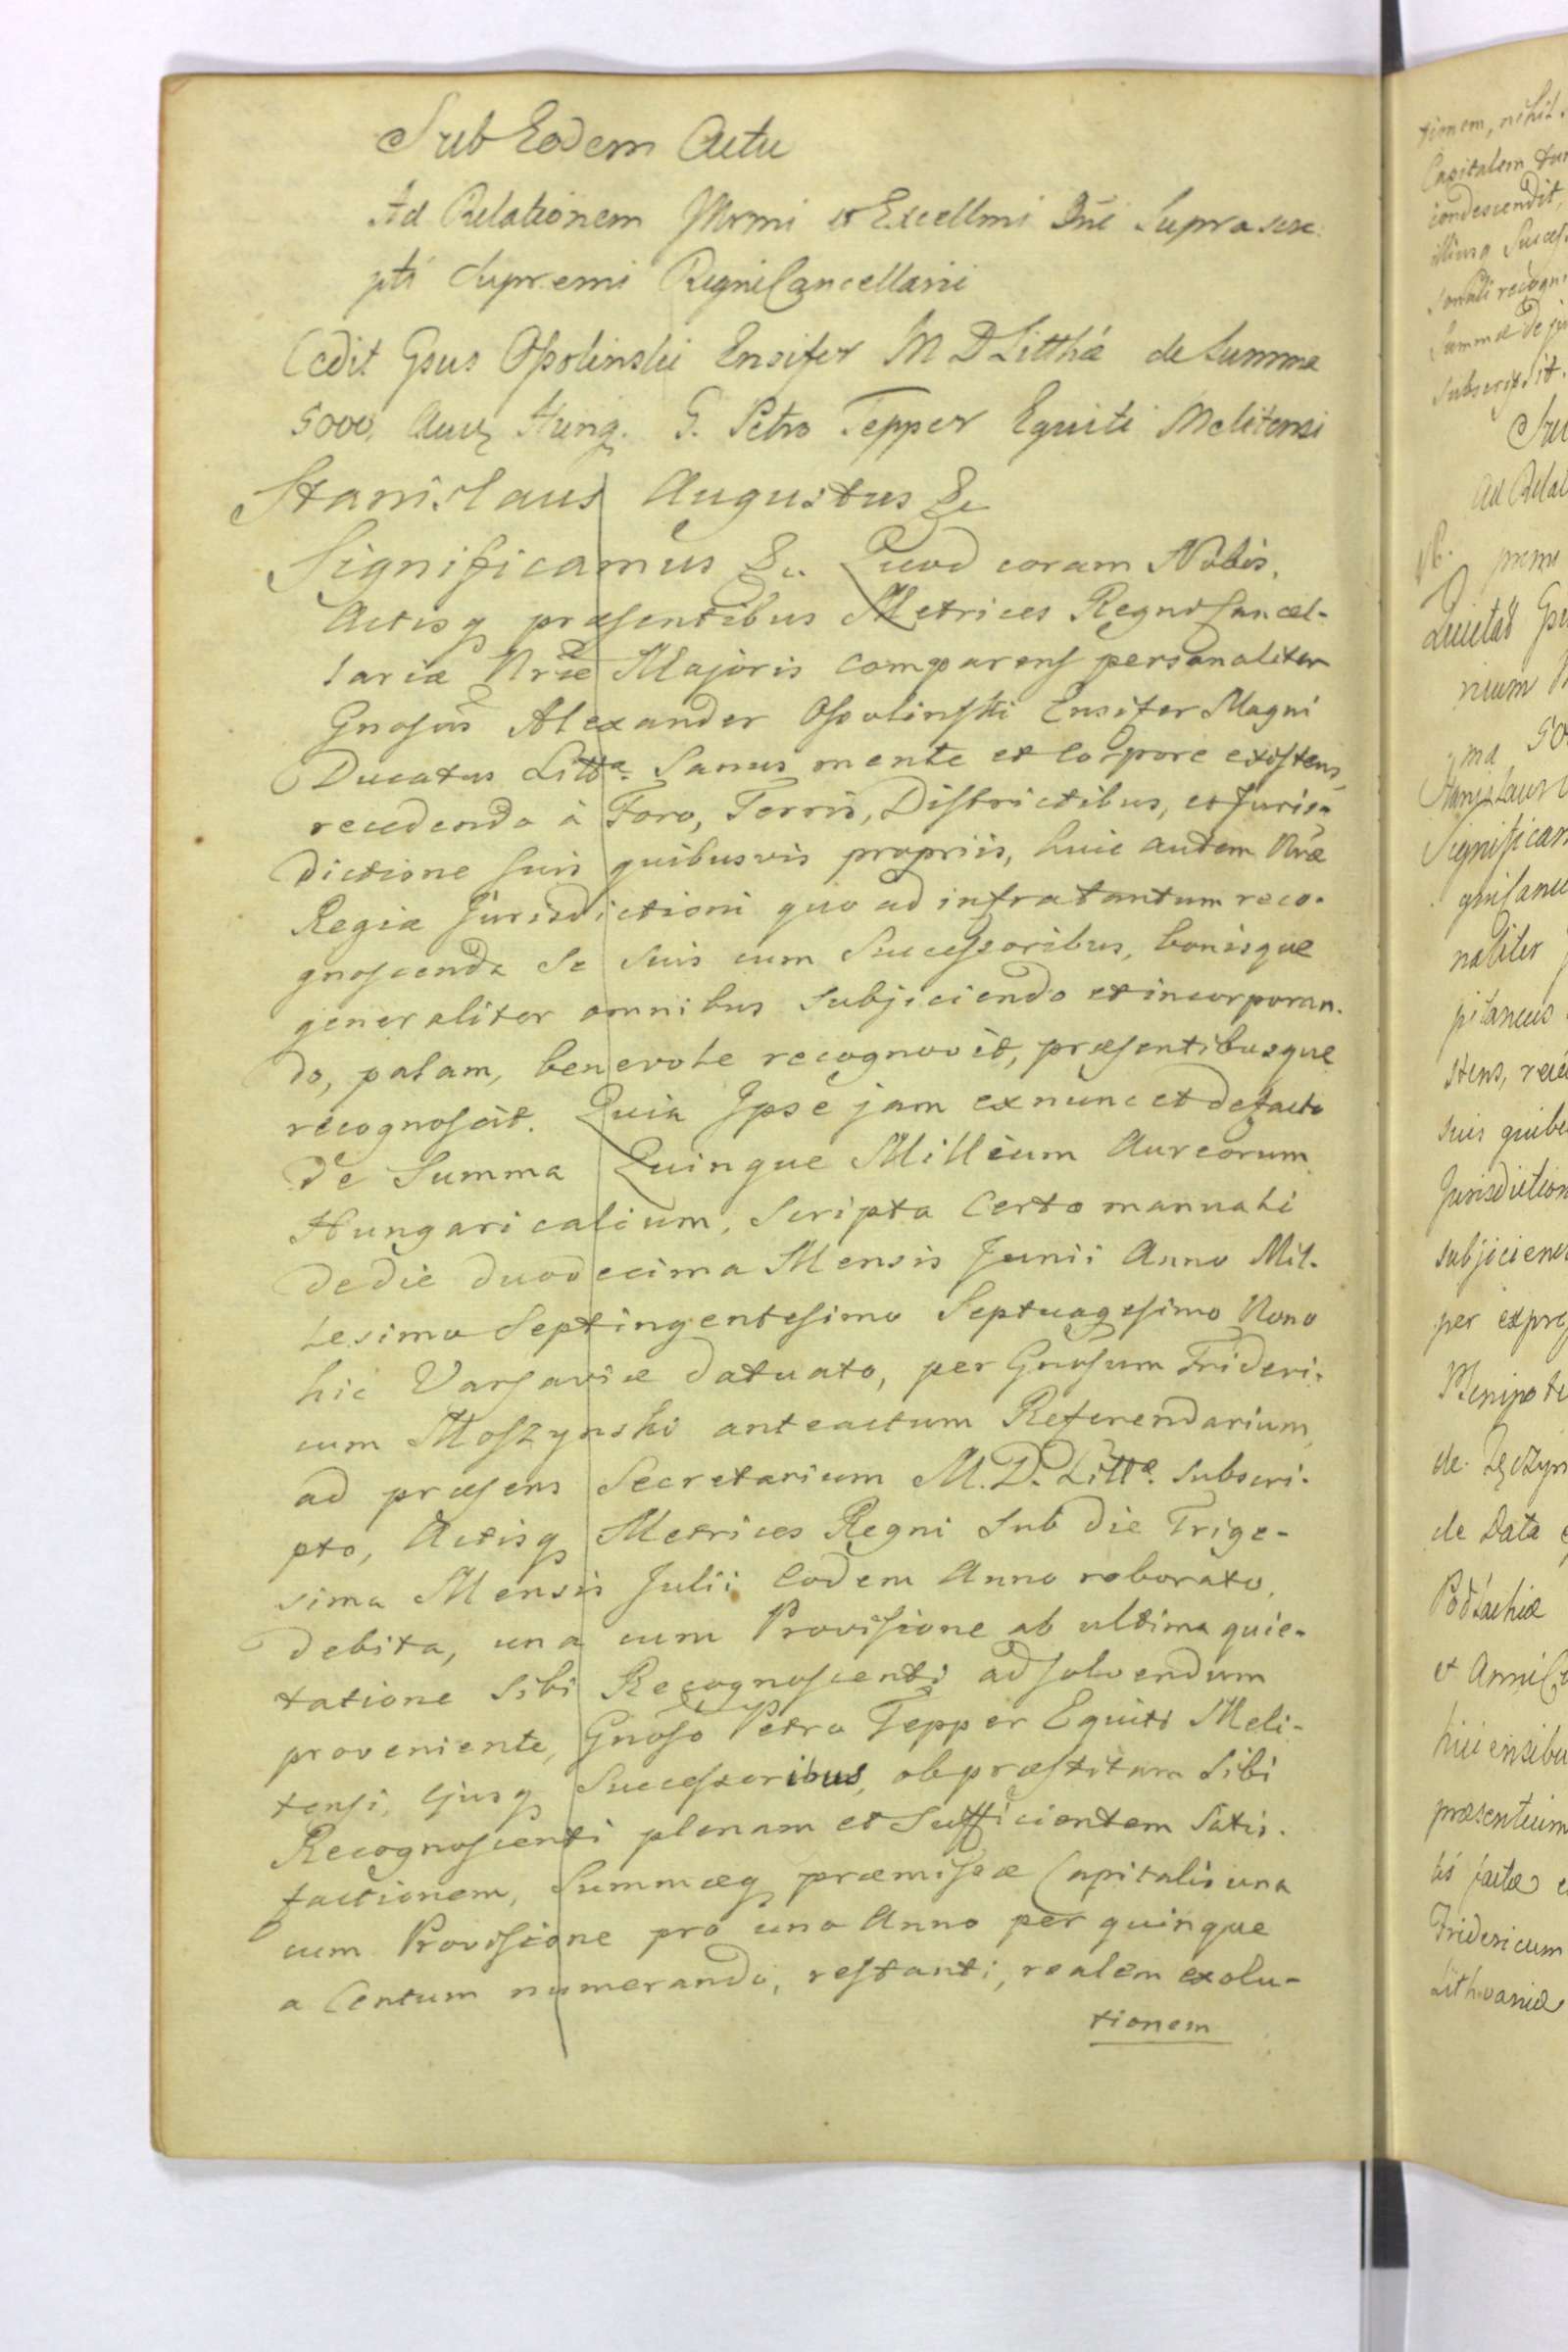 Sub Eodem Actu
Ad Relationem Jllrmi et Excellmi Dni Suprascri
pti Supremi Regni Cancellarii
Cedit Gsus Ossolinski Ensifer M D Litthæ de Summa
5000, Aur. Hung. G. Petro Tepper Equiti Melitensi
Stanislaus Augustus &c
Significamus &c. Quod coram Nobis,
Actisq præsentibus Metrices Regni Cancel-
lariæ Nræ Majoris comparens personaliter
Gnosus Alexander Ossolinski Ensifer Magni
Ducatus Littæ. Sanus mente et corpore existens,
recedendo à Foro, Terris, Districtibus, et Juris-
dictione suis quibusvis propriis, huic autem Nræ
Regiæ Jurisdictioni quo ad infra tantum reco-
gnoscenda se suis cum Successoribus, bonisque
generaliter omnibus subjiciendo et incorporan-
do, palam, benevole recognovit, præsentibusque
recognoscit. Quia Jpse jam exnunc et defacto
de Summa Quinque Millium Aureorum
Hungaricalium, Scripto Certo manuali
dedie duodecima Mensis Junii Anno Mil-
lesimo Septingentesimo Septuagesimo Nono
hic Varsaviæ datuato, per Gnosum Frideri-
cum Moszynski anteactum Referendarium,
ad præsens Secretarium M. D. Littæ. subscri-
pto, Actisq Metrices Regni Sub die Trige-
sima Mensis Julii Eodem Anno roborato,
debita, una cum Provisione ab ultima quie-
tatione sibi Recognoscenti adsolvendum
proveniente, Gnoso Petro Tepper Equiti Meli-
tensi, Ejusq Successoribus, obpræstitam Sibi
Recognoscenti plenam et Sufficientem Satis-
factionem, Summæq præmissæ Capitalis una
cum Provisione pro uno Anno per quinque
a Centum numerando, restanti, realem exolu-
tionem
tionem, nihil
Capitalem
condescendit,
illiusq Success
recogn
Summæ de
Subscripsit.
Ad Relat
Quietat
nium
ma 50
Stanislaus
Significam
naliter
pitaneus
stens,
suis quibu
Jurisdiction
subjicien
per expre
Plenipote
de Data
Podlachiæ
et Anni
præsentium
facta
Fridericum
Lithvaniæ